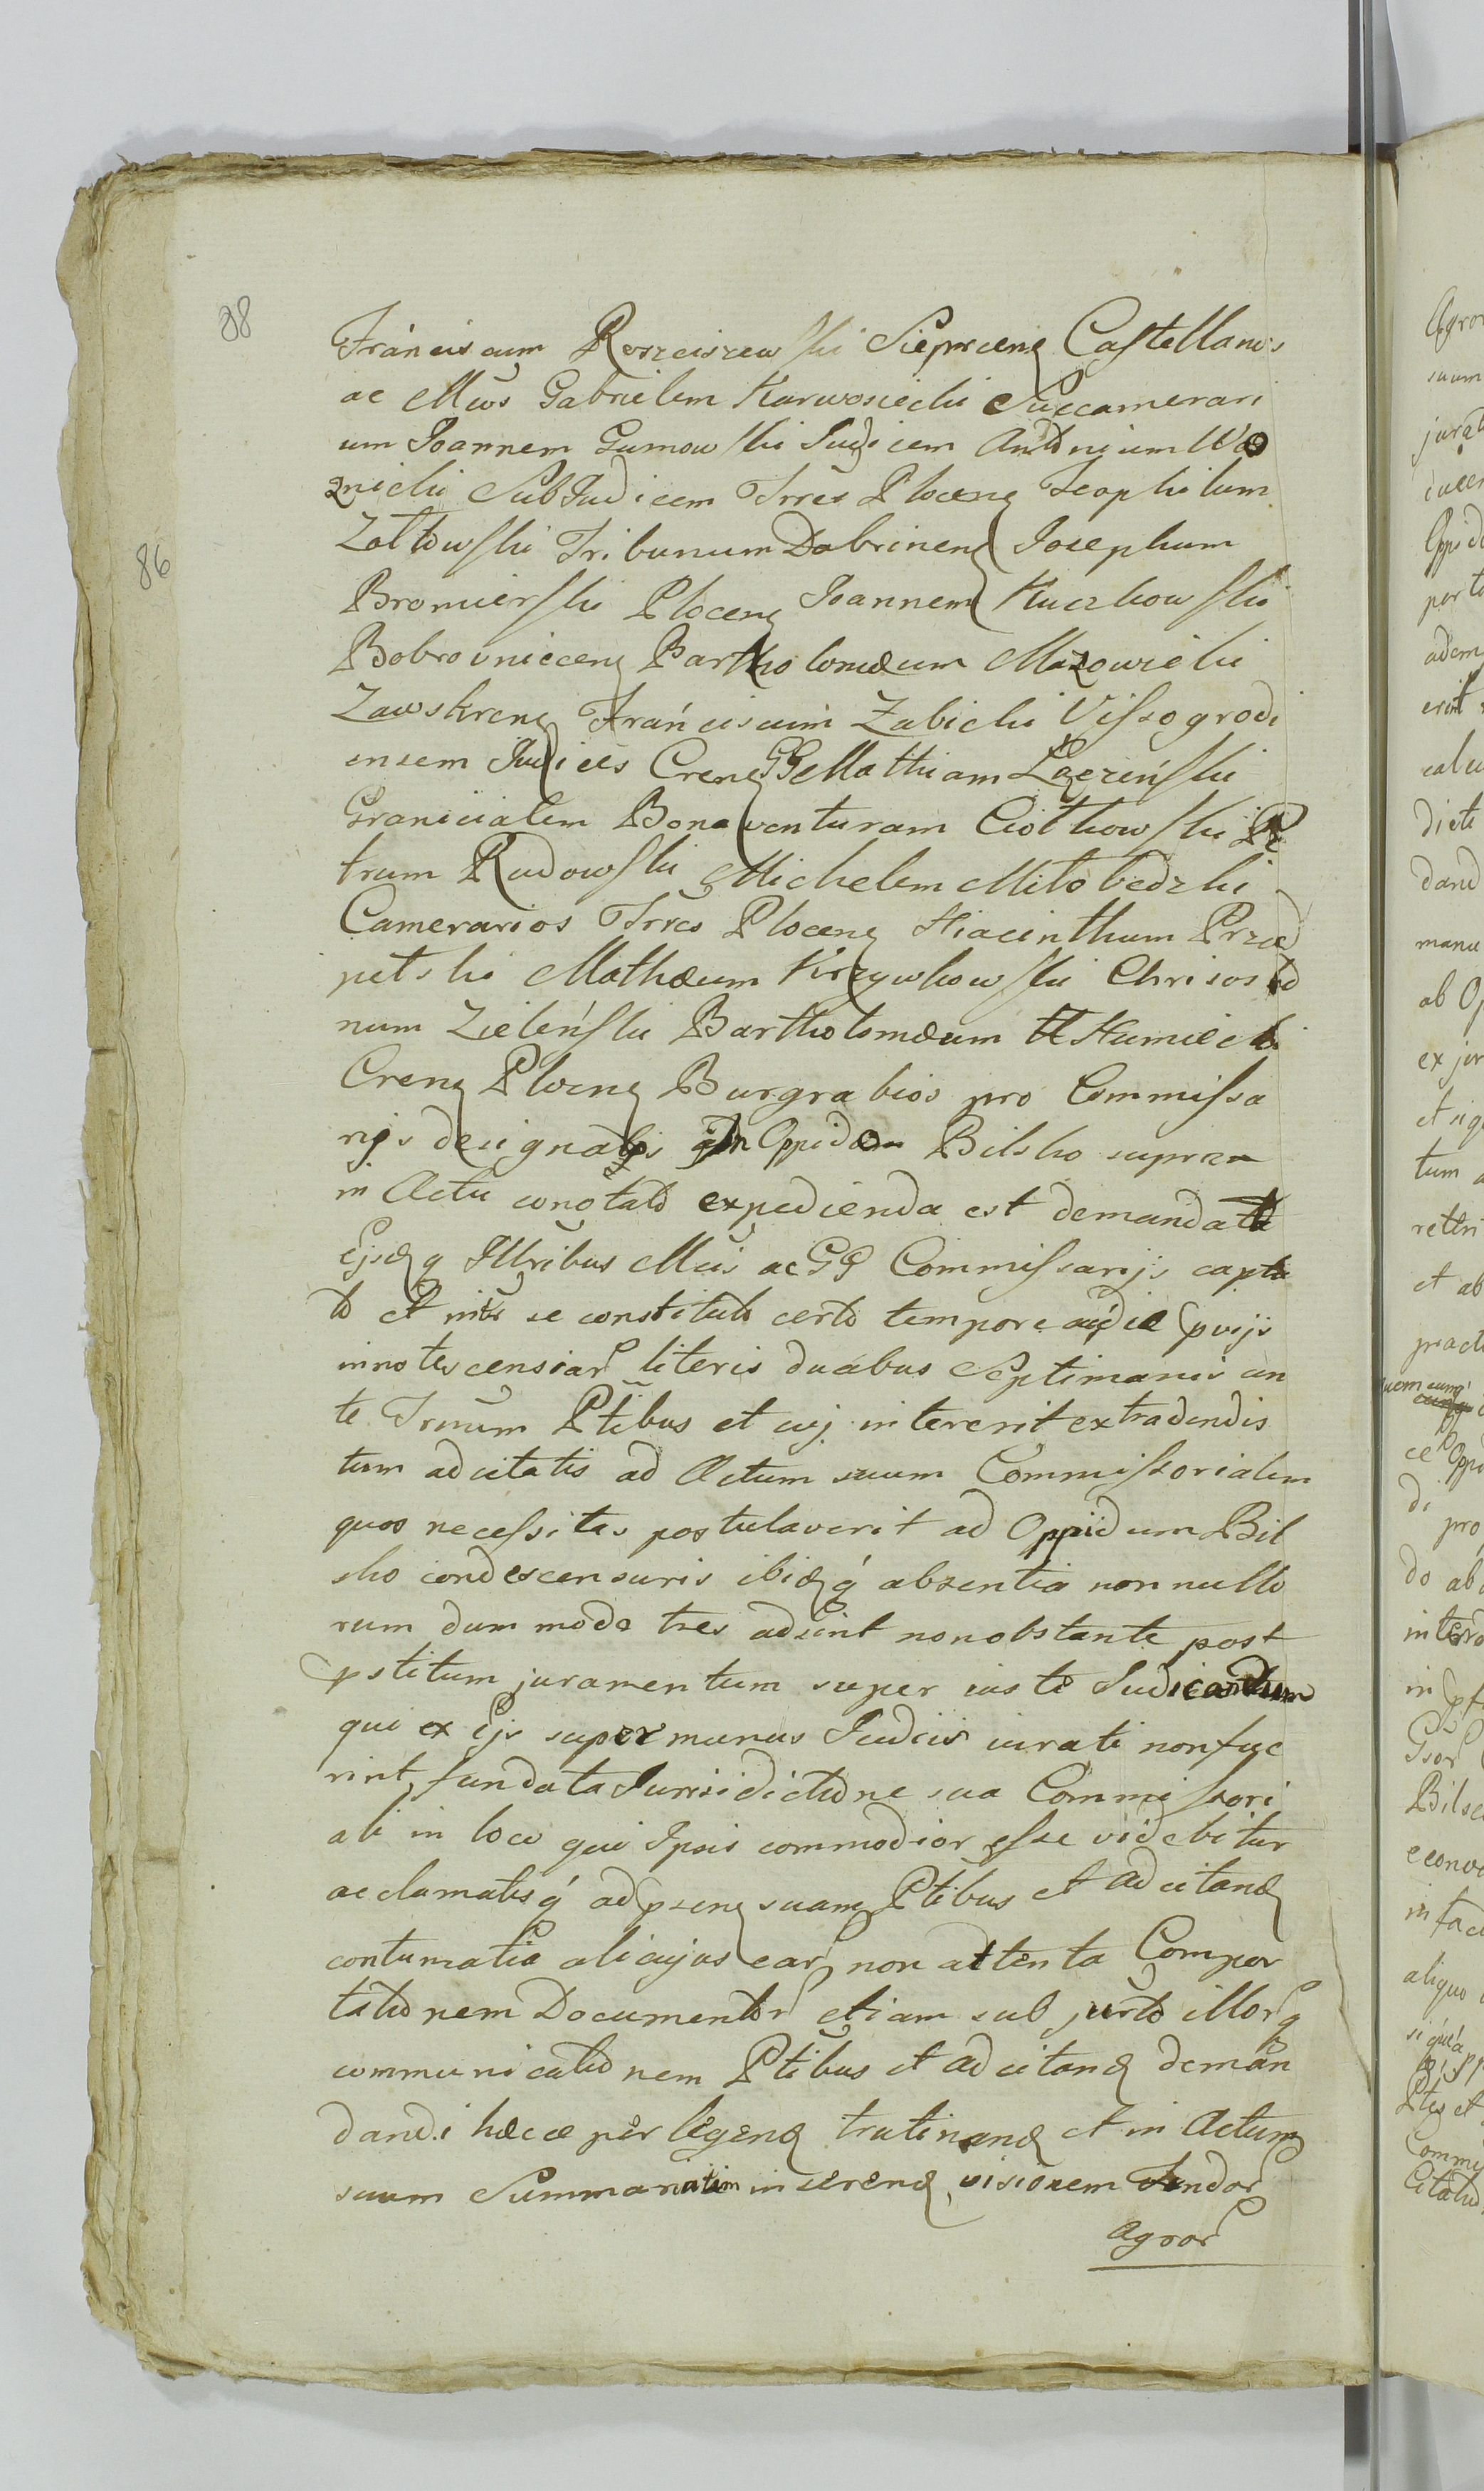 88
86
Franciscum Rosciszewski Sieprcens Castellanos
ac Mcos Gabrielem Karwosiecki Succamerari
um Joannem Gumowski Judicem Antonium Wo
znicki SubJudicem Trres Plocens Teophilum
Zołtowski Tribunum Dobrinens Josephum
Bromierski Plocens Joannem Kuczkowski
Bobrovniecens Bartholomæum Mazowiecki
Zawskrens Franciscum Zabicki Vissogrodi
ensem Judices Crens GG Mathiam Łączeński
Granicialem Bonaventuram Ciołkowski Pe
trum Rudowski Michelem Miłobędzki
Camerarios Trres Plocens Hiacinthum Przed
pełski Mathæum Krzywkowski Chrisosto
num Zieleński Bartholomæum Humiecki
Crens Plocens Burgrabios pro Commissa
rijs designatis in Oppidum Bilsko supra
in Actu conotato expedienda est demandata
Ejsdq Illribus Mcis ac GG Commissarijs capta
to et inter se constituto certo tempore ac die pvijs
innotescensiar literis duabus Septimanis an
te Trnum Ptibus et cuj intererit extradendis
tum adcitatis ad Actum suum Commissorialem
quos necessitas postulaverit ad Oppidum Bil
sko condescensuris ibidq absentia nonnullo
rum dum modo tres adsint nonobstante post
pstitum juramentum super iuste Judicandum
qui ex Ijs super munus Judicis iurati non fue
rint, fundata Jurisidictione sua Commissori
ali in loco qui Ipsis commodior esse videbitur
acclamatisq ad psens suam Ptibus et adcitand
contumatia alicujus ear non attenta Compor
tationem Documentor etiam sub jurto illorq
communicationem Ptibus et adcitand deman
dandi hæcce perlegend trutinand et in Actum
suum Summariatim inserend, visionem Fundor
Agror